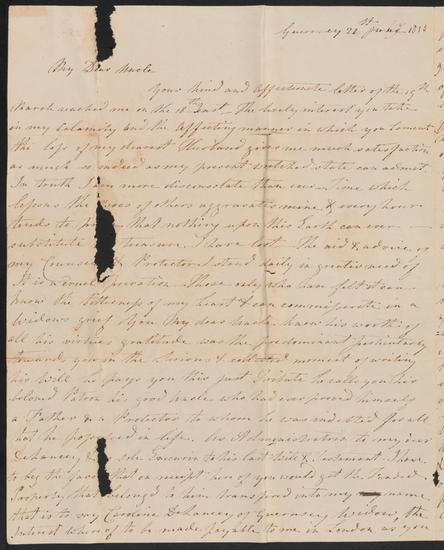 Guernsey 21st July 1813
My Dear Uncle
Your kind and affectionate letter of the 19th
March reached me on the 18th Inst. The lively interest you take
in my calamity and the affecting manner in which you lament
the loss of my dearest Husband gives me much satisfaction
as much indeed as my present wretched state can admit.
In truth I am more disconsolate than ever Time which
lessons the woes of others aggravates mine & every hour
tends to that nothing upon this Earth can ever
substitute treasure I have lost - The aid & advice of
my Counsel & Protector I stand daily in greatest need of
It is a cruel privation - Those only who have felt it can
know the bitterness of my heart & can commiserate in a
Widows grief You my dear Uncle knew his worth of
all his virtues gratitude was the predominant particularly
towards you in the serious & collected moment of writing
his Will he pays you this just tribute he calls you his
beloved his good Uncle who had ever proved himself
a Father & a Protector to whom he was indebted for all
that he possessed in life. As Administratrix to my dear
Dehancey & sole Executrix to his last Will & Testament I have
to beg the favor that on receipt hereof you would get the Funded
Property that belonged to him transposed into my name
that is to say Caroline Dehancey of Guernsey, Widow, the
Interest whereof to be made payable to me in London as you